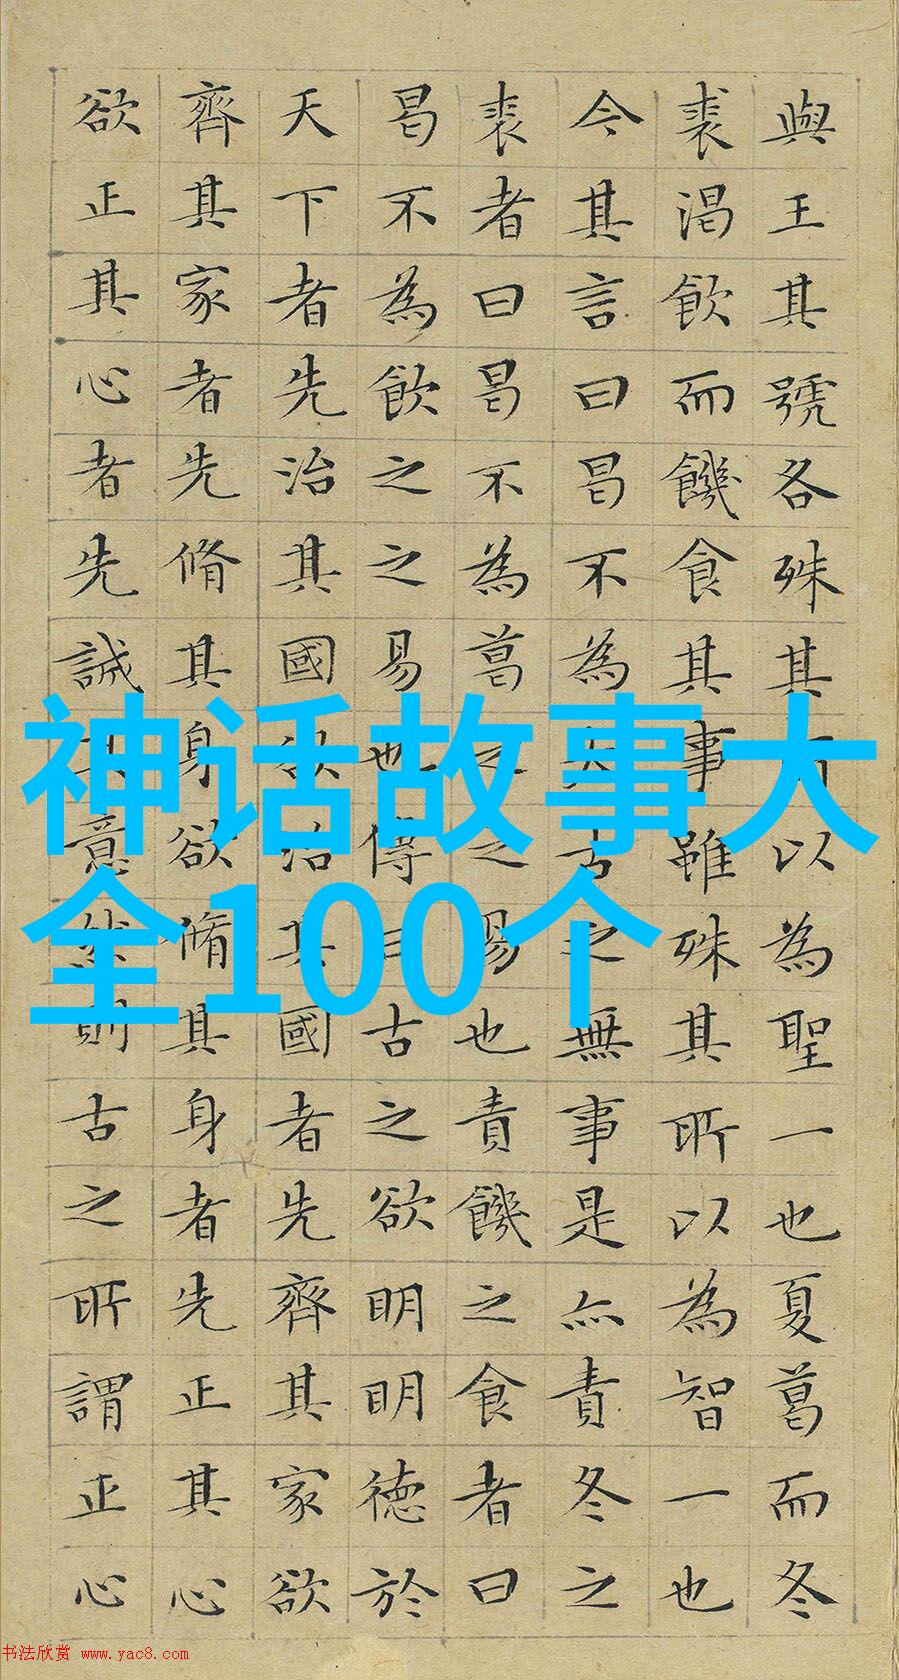 與王其號各殊其以為聖一也夏葛而冬
裘渴飲而饑食其事雖殊其所以為智一也
今其言曰曷不為古之無事是亦責冬之
裘者曰曷不為葛之之易也責饑之食者曰
曷不為飲之之易也傳曰古之欲明明德於
天下者先治其國欲治其國者先齊其家欲
齊其家者先脩其身欲脩其身者先正其心
欲正其心者先誠其意然則古之所謂正心
神话故事大
全100个
书法欣赏 www.yac8.com